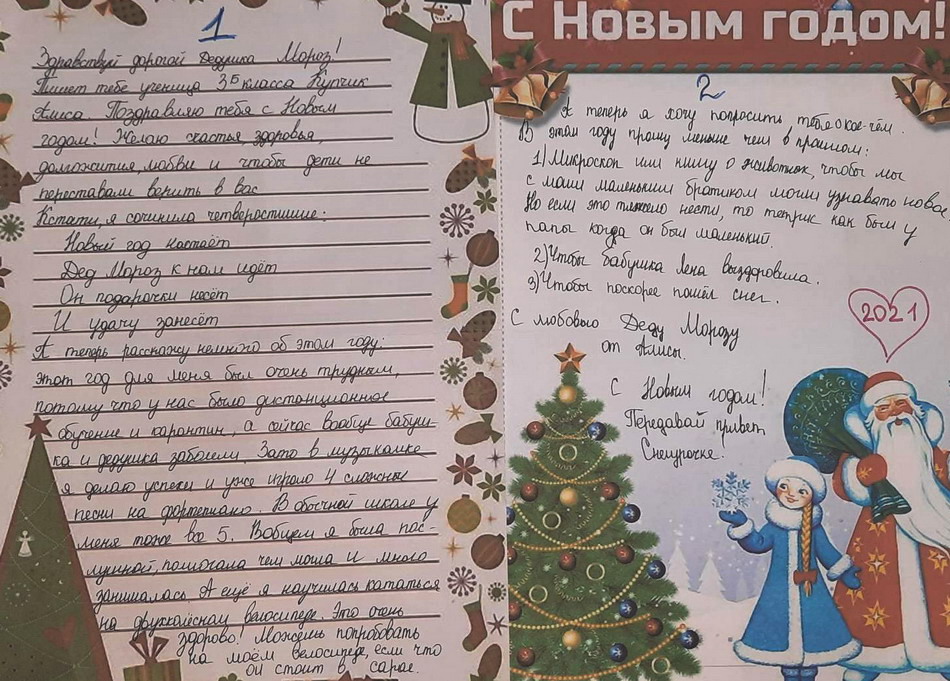 1
Здравствуй дорогой Дедушка Мороз!
Пишет тебе ученица 3Б класса Купчик
Алиса. Поздравляю тебя с Новым
годом! Желаю счастья, здоровья,
долгожития, любви и чтобы дети не
переставали верить в вас
Кстати, я сочинила четверостишие:
Новый год настаёт
Дед Мороз к нам идёт
Он подарочки несёт
И удачу занесёт
А теперь расскажу немного об этом году:
этот год для меня был очень трудным,
потому что у нас было дистанционное
обучение и карантин, а сейчас вообще бабуш-
ка и дедушка заболели. Зато в музыкалке
я делаю успехи и уже играю 4 сложные
песни на фортепиано. В обычной школе у
меня тоже все 5. Вобщем я была пос-
лушной, помогала чем могла и много
занималась А ещё я научилась кататься
на двухколёсном велосипеде. Это очень
здорово! Можешь попробовать
на моём велосипеде, если что
он стоит в сарае.
С Новым годом!
2
А теперь я хочу попросить тебя о кое-чём.
В этом году прошу меньше чем в прошлом:
1) Микроскоп или книгу о животных, чтобы мы
с моим маленьким братиком могли узнавать новое
Но если это тяжело нести, то тетрис как был у
папы когда он был маленький.
2) Чтобы бабушка Лена выздоровила.
3) Чтобы поскорее пошёл снег.
С любовью Деду Морозу
от Алисы.
2021
С Новым годом!
Передавай привет
Снегурочке.